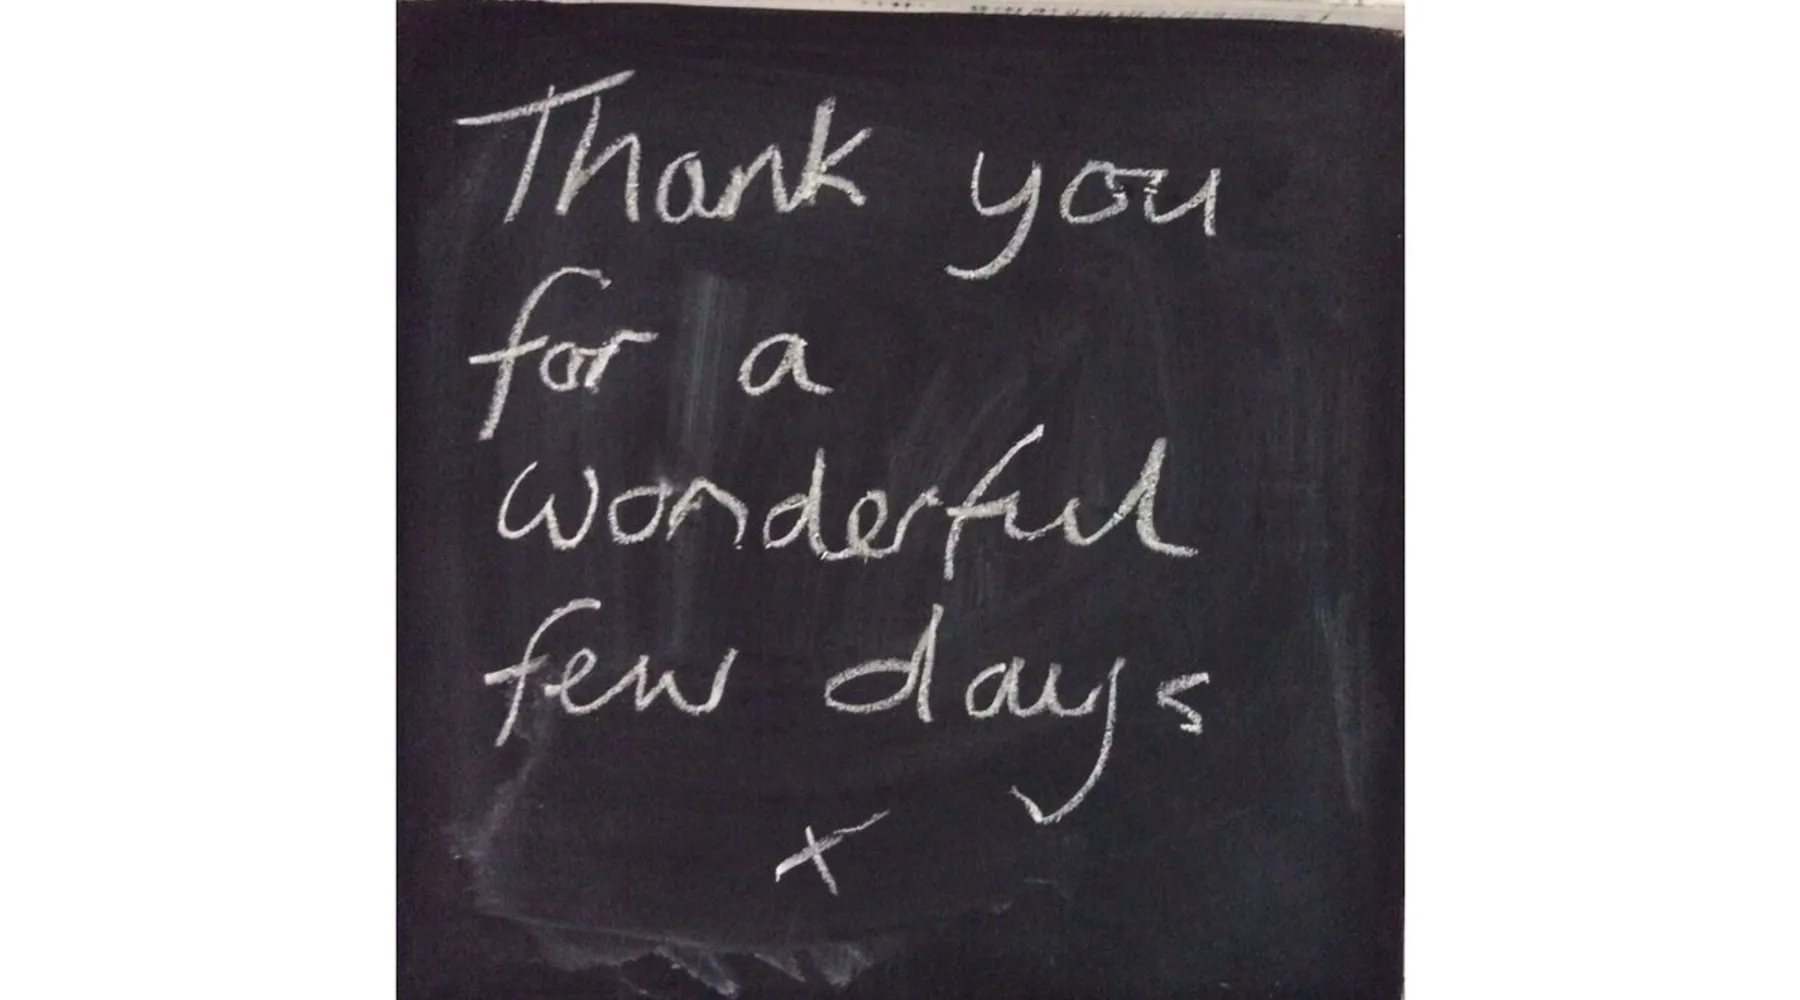 Thank you
for a
wonderful
few days
x